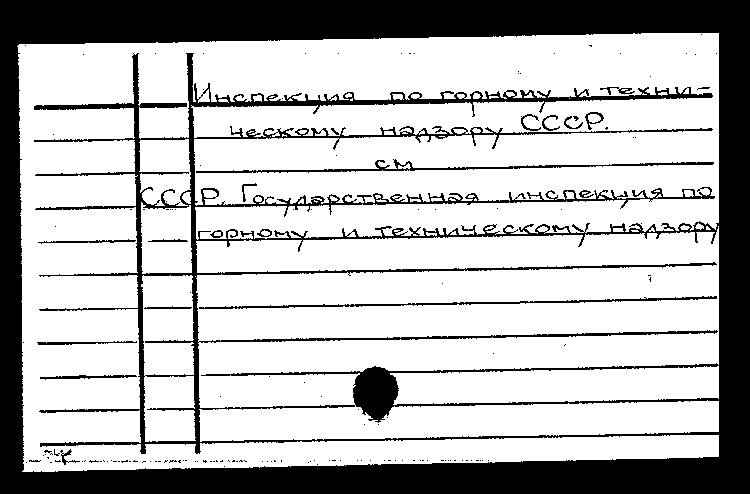 Инспекция по горному и техни-
ческому надзору СССР.
см
СССР. Государственная инспекция по
горному и техническому надзору